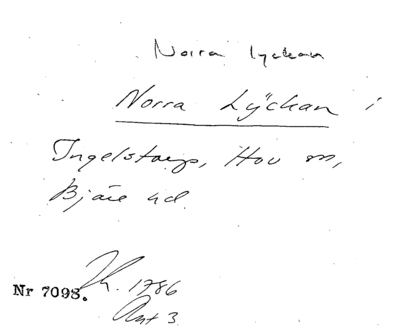 Norra lyckan
Norra Lÿckan i
Ingelstorp, Hov sn,
Bjäre hd.
Nr 7098. Lh. 1786
Akt 3